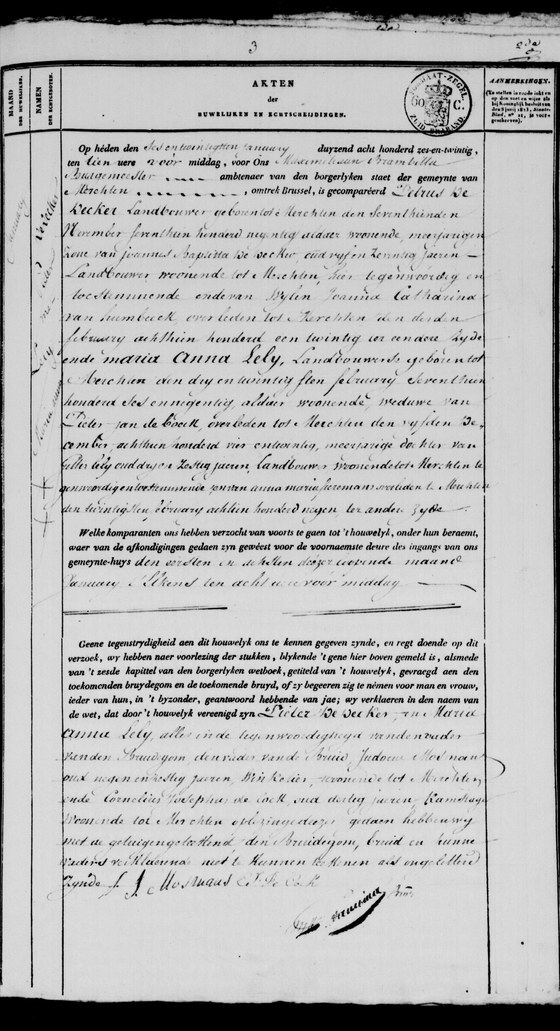 3
2de
MAAND
DER HUWELIJKEN.
NAMEN
DER ECHTGENOTEN.
AKTEN
der
HUWELIJKEN EN ECHTSCHEIDINGEN.
60 C.
ZUID-BRABAND.
AANMERKINGEN.
Op héden den sesentwintigsten january duyzend acht honderd zes-en-twintig,
ten tien uere voór middag, voór Ons Maximiliaen
Burgemeester ambtenaer van den borgerlyken staet der gemeynte van
Merchten , omtrek Brussel, is gecomparéerd Petrus De
Decker Landbouwer geboren tot Merchten den seventhienden
November seventhien honderd negentig aldaer woonende, meerjarigen
zone van Joannes Baptista De Decker, oud vyf en zeventig jaeren
Landbouwer woonende tot Merchten, hier tegenwoordig en
toestemmende ende van wylen Joanna Catharina
van humbeeck, overleden tot Merchten den derden
february achthien honderd een twintig ter eendere zyde
ende maria Anna Lely, Landbouwerss geboren tot
Merchten den dry en twintigsten february seventhien
honderd ses en negentig, aldaer woonende, weduwe van
Pieter jan de Cock overleden tot Merchten den vyfden De
cember achthien honderd vier en twintig, meerjarige dochter van
Lely oud dry en zestig jaeren, Landbouwer woonende tot Merchten te
genwoordig en toestemmende en van anna maria overleden te Merchten
den twintigsten february achtien honderd negen ter andere zyde
Welke komparanten ons hebben verzocht van voorts te gaen tot 't houwelyk, onder hun beraemt,
waer van de afkondigingen gedaen zyn gewéést voor de voornaemste deure des ingangs van ons
gemeynte-huys den eersten en achsten dezer loopende maand
January telkens ten acht uere voor middag
Geene tegenstrydigheid aen dit houwelyk ons te kennen gegeven zynde, en regt doende op dit
verzoek, wy hebben naer voorlezing der stukken, blykende 't gene hier boven gemeld is, alsmede
van 't zesde kapittel van den borgerlyken wetboek, getiteld van 't houwelyk, gevraegd aen den
toekomenden bruydegom en de toekomende bruyd, of zy begeeren zig te némen voor man en vrouw,
ieder van hun, in 't byzonder, geantwoord hebbende van jae; wy verklaeren in den naem van
de wet, dat door 't houwelyk vereenigd zyn Pieter De Decker, en Maria
Anna Lely, alles in de tegenwoordigheyd van den vader
van den Bruidegom, den vader van de Bruid, Judocus Mosmans
oud negen en zestig jaeren, Winkelier, woonende tot Merchten,
ende Cornelius Josephus de Cock, oud dertig jaeren,
woonende tot Merchten en lezinge dezer gedaen hebben wy
met de getuigen geteekend, den Bruidegom, bruid en hunne
vaders verklaerende niet te kunnen teekenen als ongeletterd
zynde J J Mosmans C J De Cock